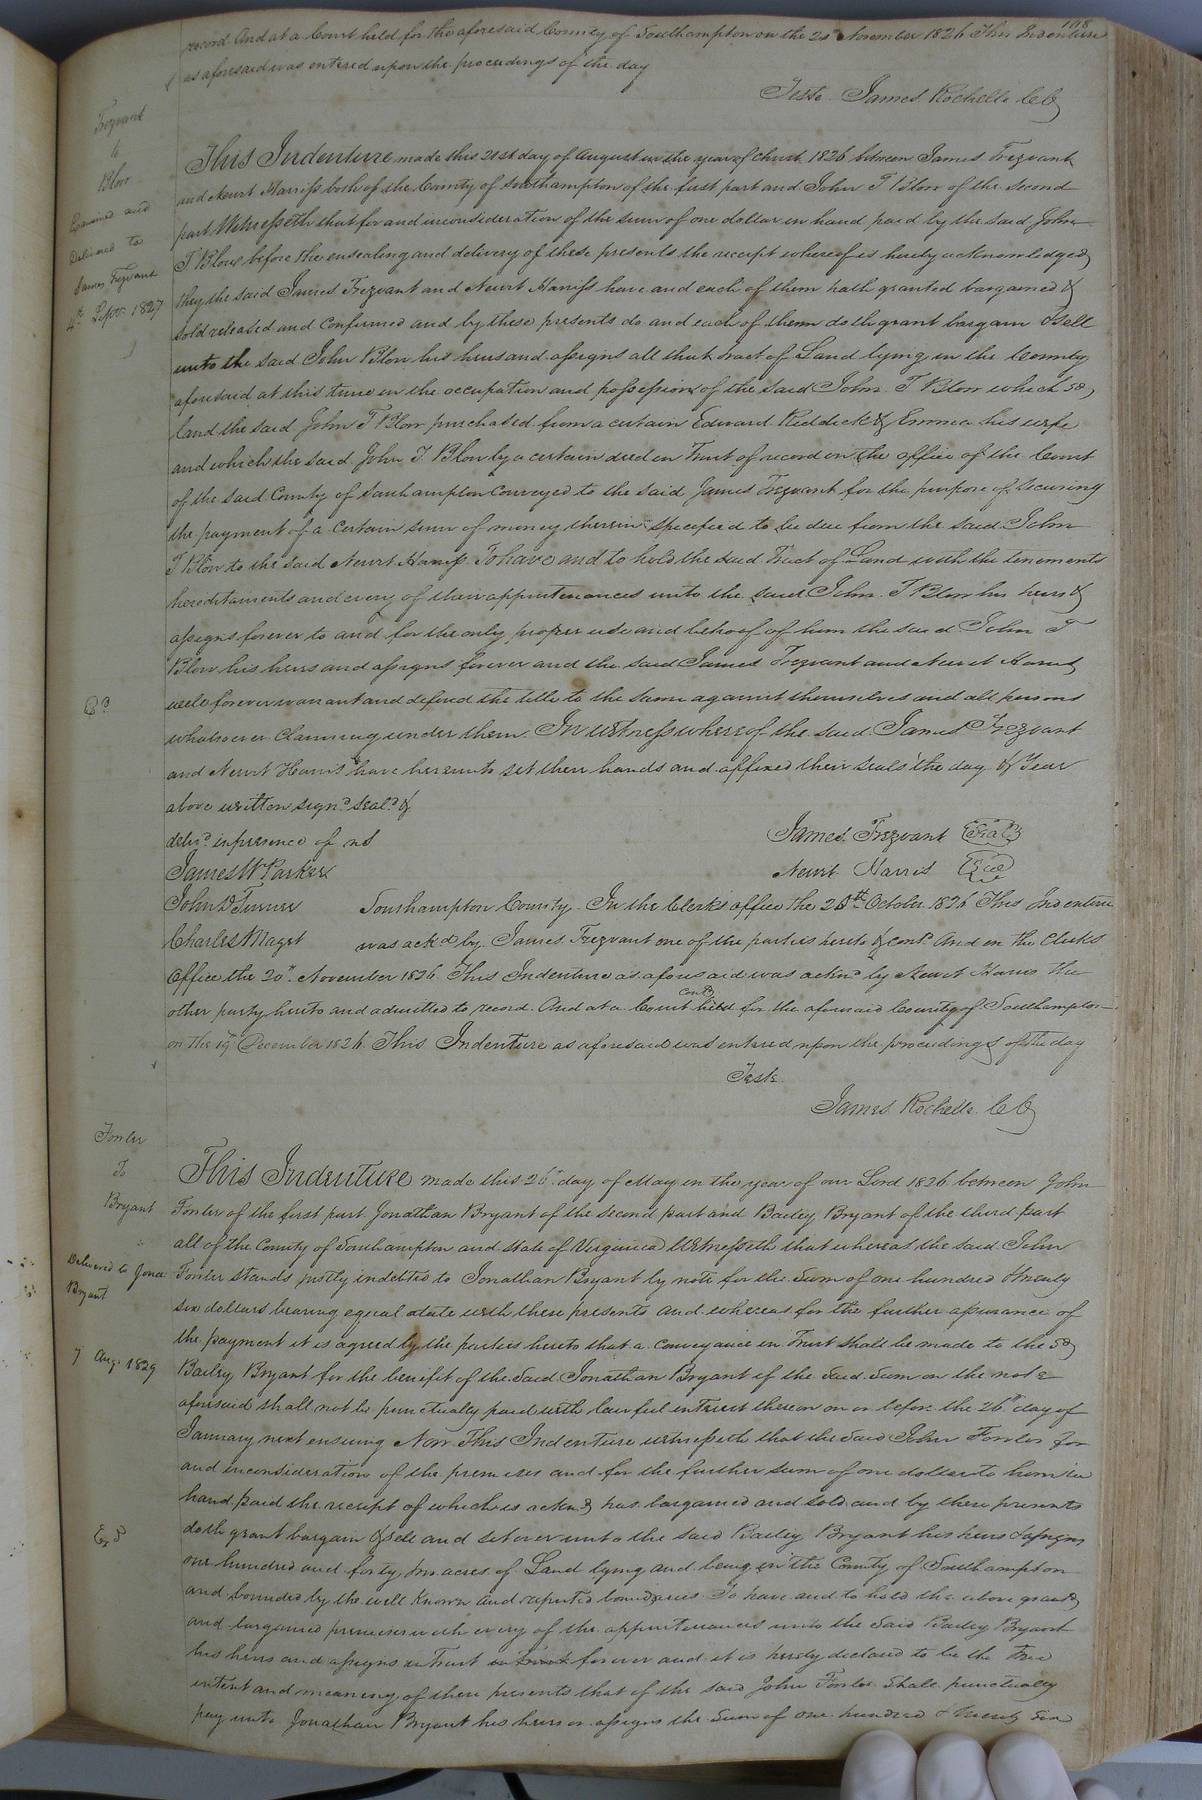 108
record. And at a Court held for the aforesaid County of Southampton on the 20th November 1826 This Indenture
as aforesaid was entered upon the proceedings of the day
Teste James Rochelle CC
Trezvant
to
Blow
Examined and
Delivered to
James Trezvant
4th Septr. 1827
This Indenture made this 21st day of August in the year of Christ 1826 between James Trezvant
and Newit Harriss both of the County of Southampton of the first part and John T Blow of the second
part Witnesseth that for and in consideration of the sum of one dollar in hand paid by the said John
T Blow before the ensealing and delivery of these presents the receipt whereof is hereby acknowledged
they the said James Trezvant and Newit Harriss have and each of them hath granted bargained &
sold released and confirmed and by these presents do and each of them doth grant bargain & sell
unto the said John Blow his heirs and assigns all that tract of Land lying in the County
aforesaid at this time in the occupation and possession of the said John T Blow which sd
land the said John T Blow purchased from a certain Edward Riddick & Emmea his wife
and which the said John T Blow by a certain deed in Trust of record in the office of the Court
of the said County of Southampton conveyed to the said James Trezvant for the purpose of securing
the payment of a certain sum of money therein specified to be due from the said John
T Blow to the said Newit Harriss To have and to hold the said Tract of Land with the tenements
hereditaments and every of their appurtenances unto the said John T Blow his heirs &
assigns forever to and for the only proper use and behoof of him the said John T
Blow his heirs and assigns forever and the said James Trezvant and Newit Harris
will forever warrant and defend the title to the same against themselves and all persons
whatsoever claiming under them. In witness whereof the said James Trezvant
and Newit Harris have hereunto set their hands and affixed their seals the day & Year
above written signd seald &
delivd in presence of us
James Trezvant Seal
James W Parker
Newit Harris Seal
John D Turner
Southampton County In the Clerks office the 25th October 1826 This Indenture
Charles Maget
was ackd by James Trezvant one of the parties hereto & contd. And in the Clerks
Office the 20th November 1826 This Indenture as aforesaid was acknd by Newit Harris the
other party hereto and admitted to record. And at a Court contd held for the aforesaid County of Southampton
on the 19th December 1826 This Indenture as aforesaid was entered upon the proceedings of the day
Teste
James Rochelle CC
Fowler
To
Bryant
Delivered to Jona
Bryant
7 Aug. 1829
Exd
This Indenture made this 26th day of May in the year of our Lord 1826 between John
Fowler of the first part Jonathan Bryant of the second part and Bailey Bryant of the third part
all of the County of Southampton and State of Virginia Witnesseth that whereas the said John
Fowler stands justly indebted to Jonathan Bryant by note for the sum of one hundred & twenty
six dollars bearing equal date with these presents and whereas for the further assurance of
the payment it is agreed by the parties hereto that a conveyance in Trust shall be made to the sd
Bailey Bryant for the benefit of the said Jonathan Bryant if the said sum on the note
aforesaid shall not be punctually paid with lawful interest thereon on or before the 26th day of
January next ensuing Now This Indenture witnesseth that the said John Fowler for
and in consideration of the premises and for the further sum of one dollar to him in
hand paid the receipt of which is acknd has bargained and sold and by these presents
doth grant bargain & sell and set over unto the said Bailey Bryant his heirs & assigns
one hundred and forty two acres of Land lying and being in the County of Southampton
and bounded by the well known and reputed boundaries To have and to hold the above granted
and bargained premises with every of the appurtenances unto the said Bailey Bryant
his heirs and assigns in Trust in trust forever and it is hereby declared to be the true
intent and meaning of these presents that if the said John Fowler shall punctually
pay unto Jonathan Bryant his heirs or assigns the sum of one hundred & twenty six